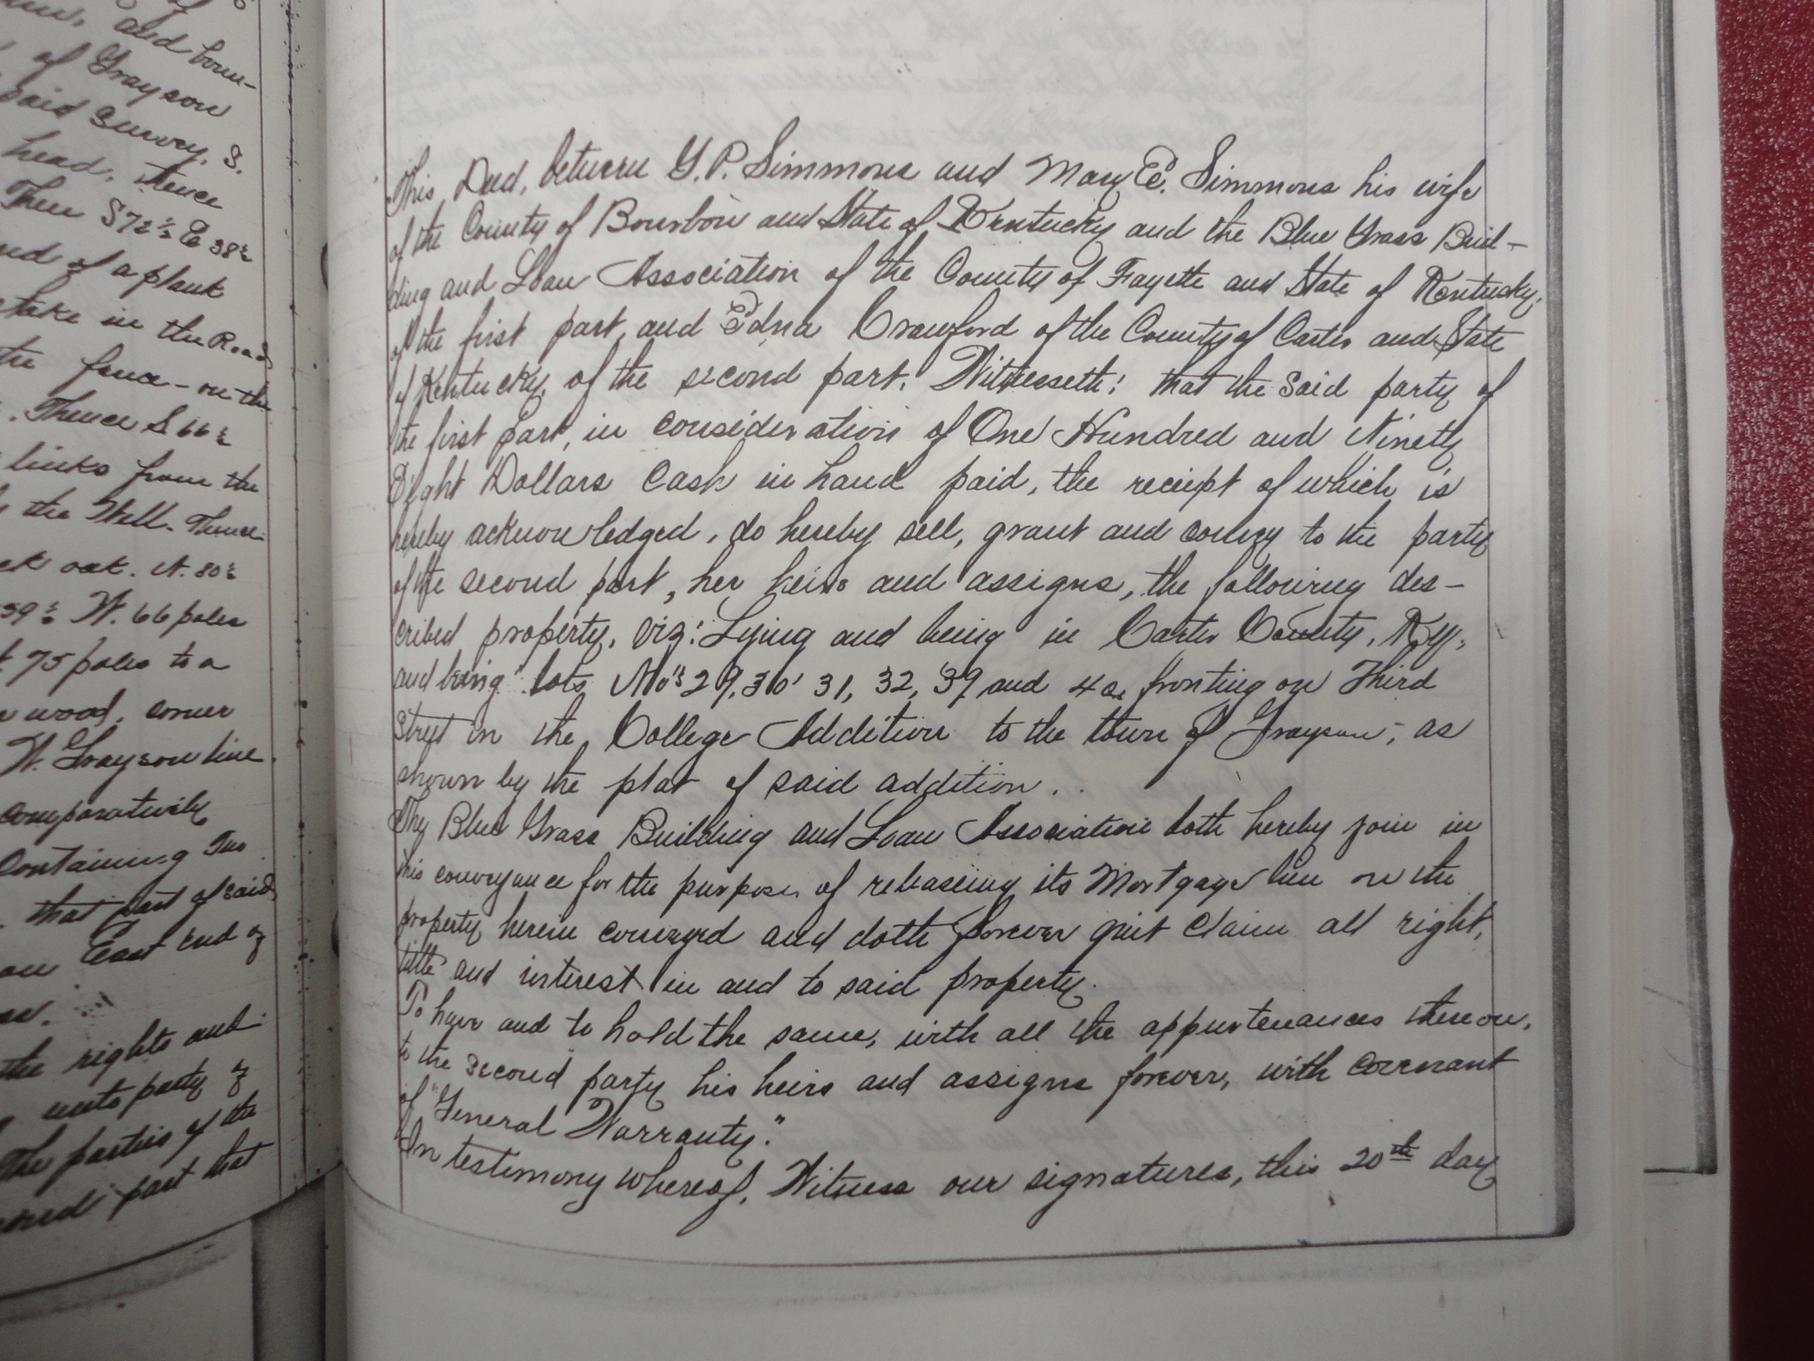 and boun-
of Grayson
said Survey, S.
head, thence
Thence S 72½ E 38½
of a plank
stake in the Road
fence - on the
. Thence S 66½
links from the
the Well. Thence
oak. N. 80½
39½ W. 66 poles
75 poles to a
wood, corner
W. Grayson line
comparatively
Containing Two
that part of said
East End of
the rights and
unto party of
The parties of the
second part that
This Deed, between G. P. Simmons and Mary E. Simmons his wife
of the County of Bourbon and State of Kentucky and the Blue Grass Buil-
ding and Loan Association of the County of Fayette and State of Kentucky,
of the first part, and Edna Crawford of the County of Carter and State
of Kentucky, of the second part. Witnesseth: that the said party of
the first part, in consideration of One Hundred and Ninety
Eight Dollars Cash in hand paid, the receipt of which is
hereby acknowledged, do hereby sell, grant and convey to the party
of the second part, her heirs and assigns, the following des-
cribed property, viz: Lying and being in Carter County, Ky.,
and being lots No's 29, 30, 31, 32, 39 and 40, fronting on Third
Street in the College Addition to the town of Grayson, as
shown by the plat of said addition.
The Blue Grass Building and Loan Association doth hereby join in
this conveyance for the purpose of releasing its Mortgage lien on the
property herein conveyed and doth forever quit claim all right,
title and interest in and to said property.
To have and to hold the same, with all the appurtenances thereon,
to the second party his heirs and assigns forever, with covenant
of "General Warranty."
In testimony whereof, Witness our signatures, this 20th day